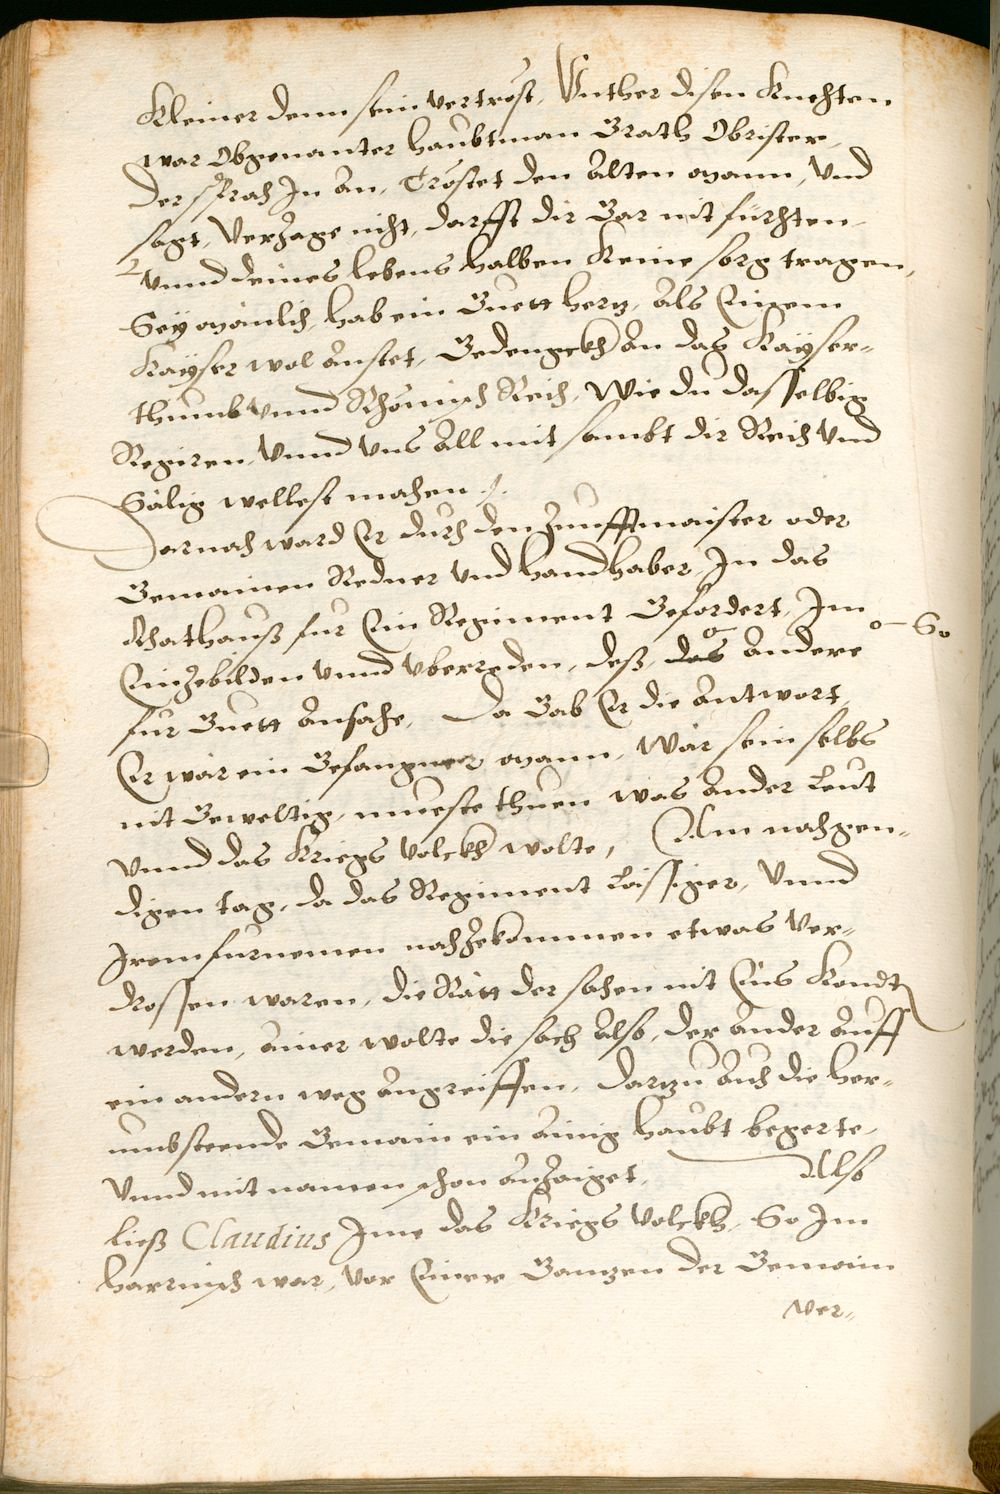 Kleiner denn sein vertrost, Unther disen Knechten
war Obgenanter haubtman Grath Obrister,
der sprach In an, Tröstet den alten mann, Und
sagt, Verzage nicht, darffst dir Gar nit fürchten
Unnd deines lebens halben Keine sorg tragen,
Sey mänlich, hab ein Guett hertz, als Einem
Kayser wol anstet, Gedengckh an das Kayser-
thumb unnd Römisch Reich, Wie du dasselbig
Regiren, Unnd uns all mit sambt dir Reich und
Sälig wellest machen ./.
Darnach ward Er durch den Zunfftmaister oder
Gemainen Redner und handhaber, In das
Rathauß fur Ein Regiment Gefordert, Im
Einzebilden unnd uberreden, deß, das andere o— So
fur Guett ansahe, Da Gab Er die antwort
Er wär ein Gefangner mann, Wär sein selbs
nit Geweltig, mueste thuen was ander Leut
Unnd das Kriegs Volckh wolte, Am nachgen-
digen tag, da das Regiment Lässiger, Unnd
Irem furnemen nachzekommen etwas Ver-
drossen waren, die Rätt der sachen nit Eins Kondt
werden, ainer wolte die sach also, der ander auff
ein andern weg angreiffen, dartzu auch die her-
umbsteende Gemain ein ainig haubt begerte,
Unnd mit namen schon anzaiget, Also
ließ Claudius Ime das Kriegs Volckh, So Im
harnisch war, vor Einer Gantzen der Gemain
ver-